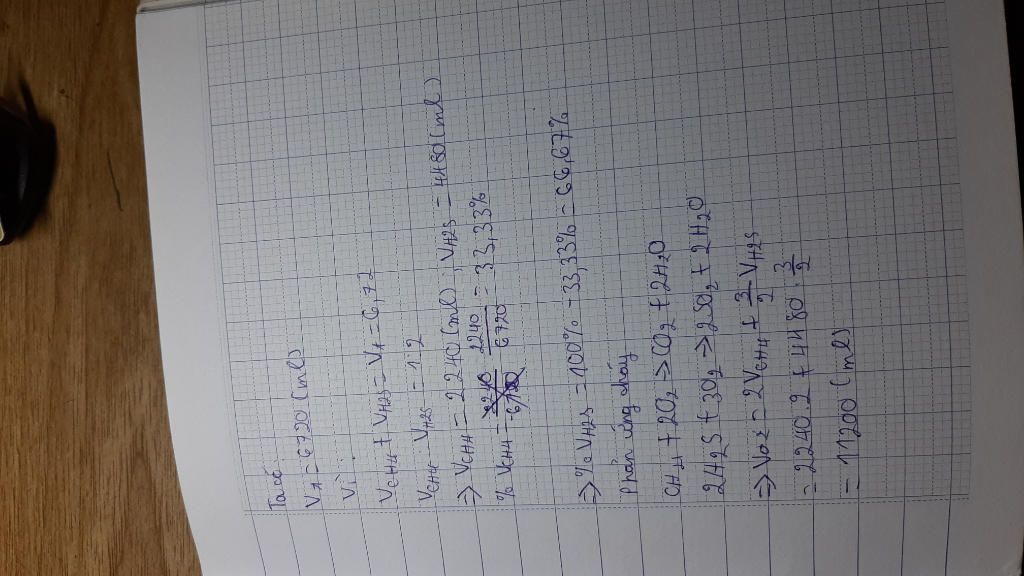 Ta có
VA = 6720 (ml)
Vì
VCH4 + VH2S = VA = 6,72
VCH4 : VH2S = 1:2
=> VCH4 = 2240 (ml) ; VH2S = 4480 (ml)
% VCH4 = 2240/6720 = 33,33%
=> % VH2S = 100% - 33,33% = 66,67%
Phản ứng cháy
CH4 + 2O2 -> CO2 + 2H2O
2H2S + 3O2 -> 2SO2 + 2H2O
=> VO2 = 2VCH4 + 3/2 VH2S
= 2240.2 + 4480.3/2
= 11200 (ml)